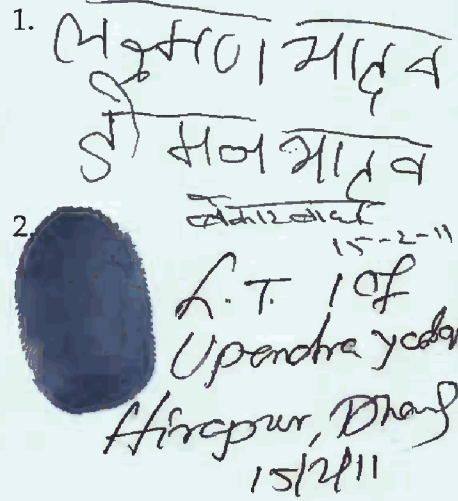 1. लक्ष्मण यादव
डोमन यादव
15-2-11
2.
L.T. I of
Upendra yadav
Hirapur, Dhan
15/2/11